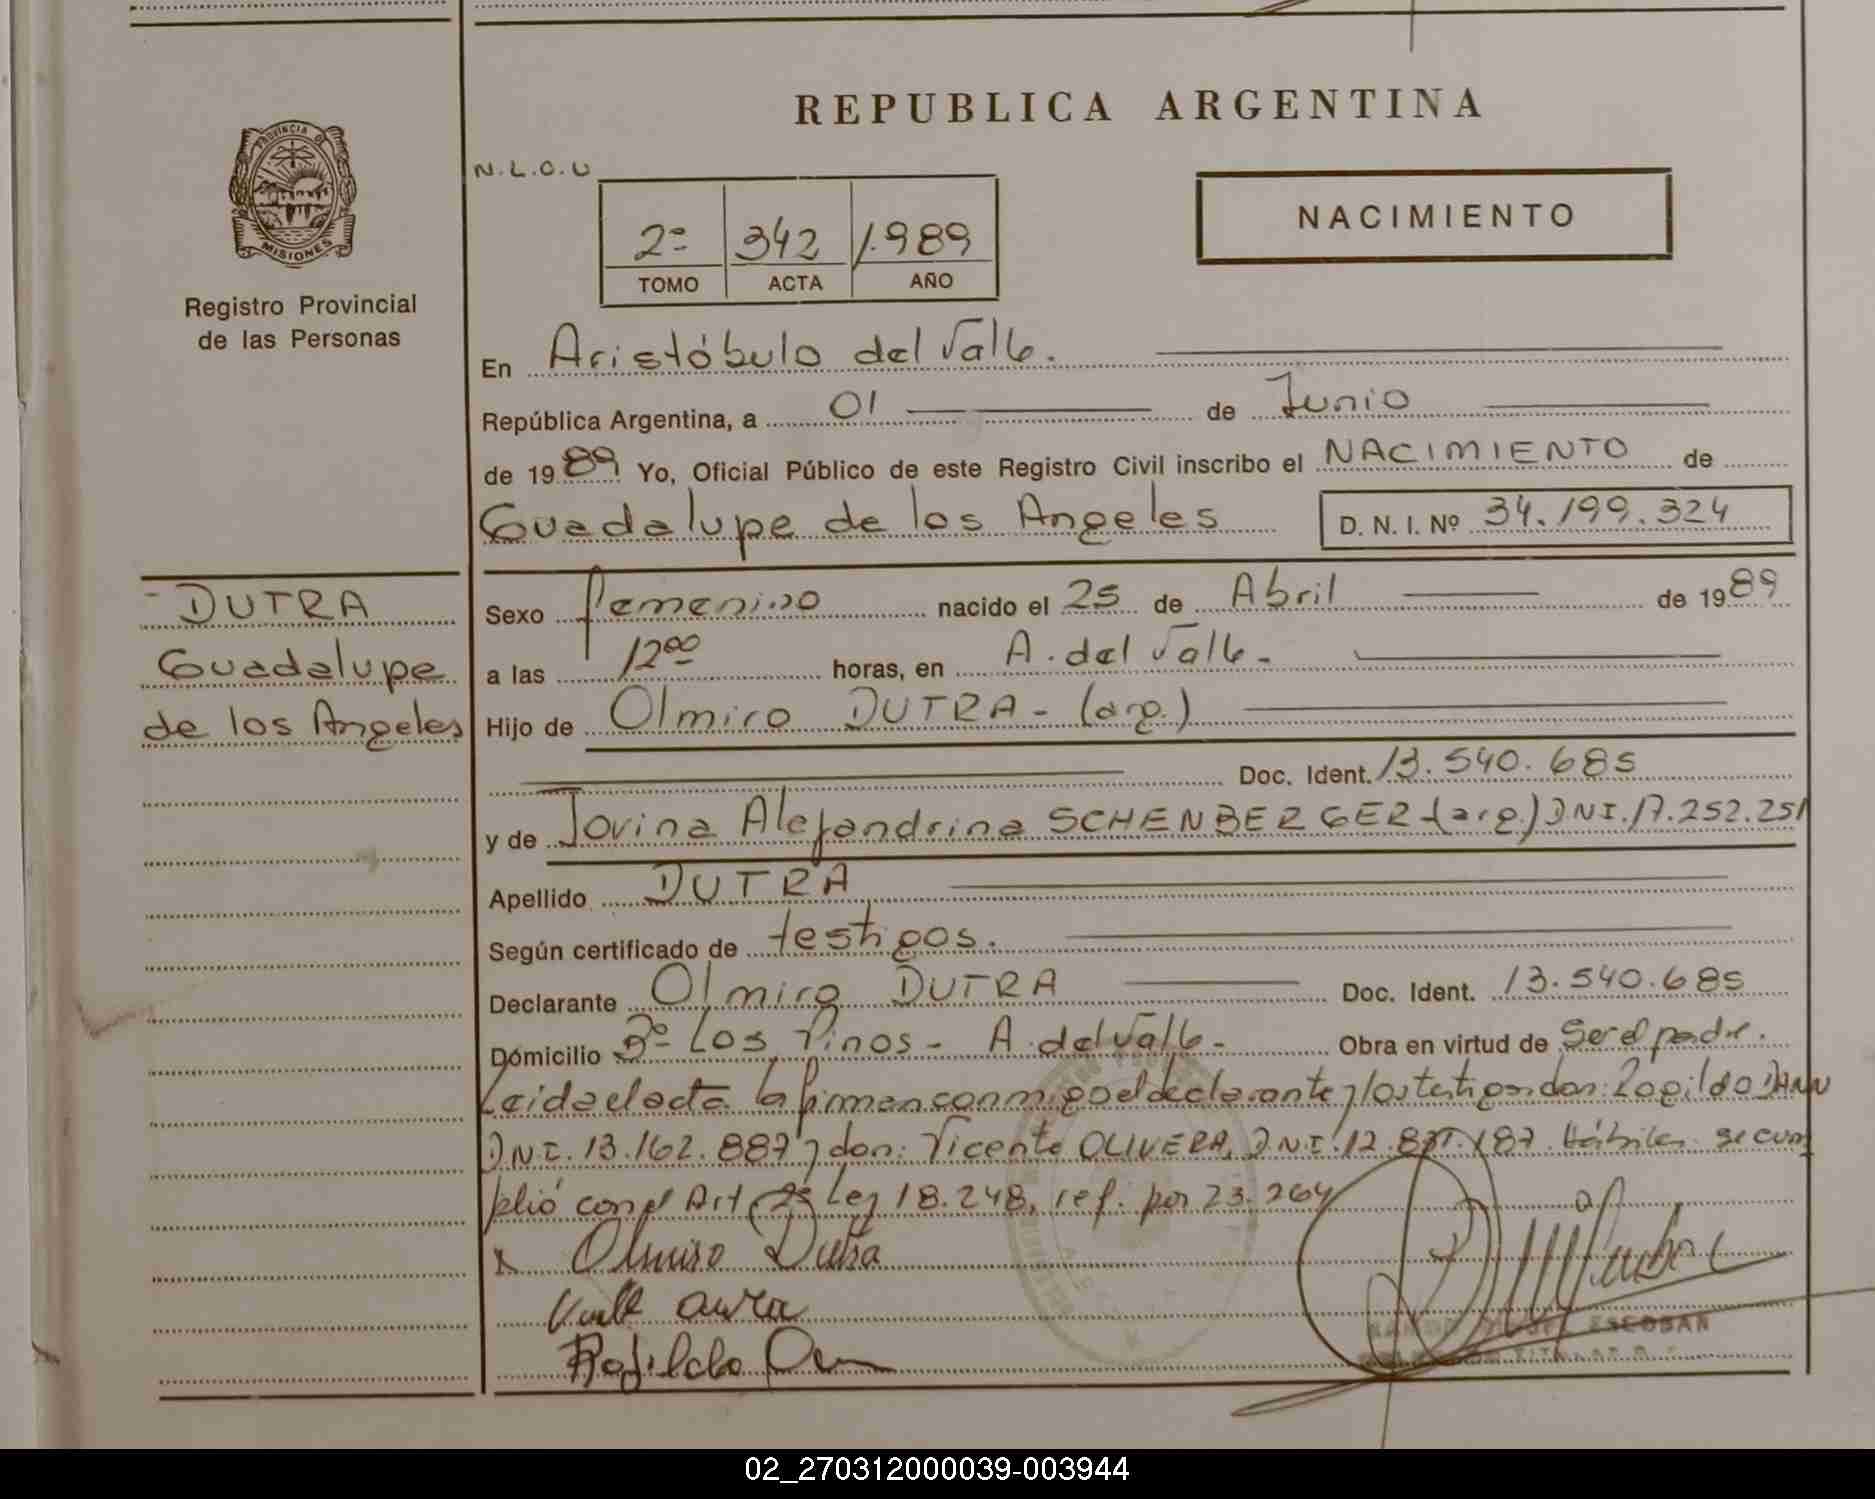 REPUBLICA ARGENTINA
PROVINCIA D
MISIONES
Registro Provincial
de las Personas
N.L.O.U
NACIMIENTO
2º 342 1.989
TOMO ACTA AÑO
En Aristóbulo del Valle.
República Argentina, a 01 de Junio
de 1989 Yo, Oficial Público de este Registro Civil inscribo el NACIMIENTO de
Guadalupe de los Angeles D. N. I. Nº 34.199.324
DUTRA
Guadalupe
de los Angeles
Sexo femenino nacido el 25 de Abril de 1989
a las 12⁰⁰ horas, en A. del Valle.
Hijo de Olmiro DUTRA - (arg.)
Doc. Ident. 13.540.685
y de Jovina Alejandrina SCHENBERGER - (arg.) DNI. 17.252.251
Apellido DUTRA
Según certificado de testigos.
Declarante Olmiro DUTRA Doc. Ident. 13.540.685
Domicilio Bº Los Pinos - A. del Valle - Obra en virtud de Ser el padre.
Leida el acta la firman conmigo el declarante y los testigos don: Rogildo DANN
D.N.I. 13.162.887 y don: Vicente OLIVERA, D.N.I. 12. .187. Hábiles. se cum
plió con el Art 2º Ley 18.248, ref. por 23.264
x Olmiro Dutra
Rogildo
ESCOBAR
02_270312000039-003944